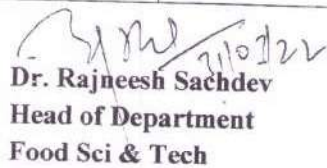 31/03/22
Dr. Rajneesh Sachdev
Head of Department
Food Sci & Tech